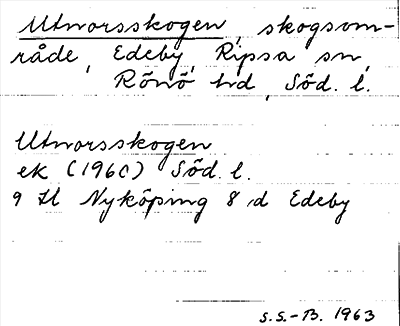 Utnorsskogen, skogsom-
råde, Edeby, Ripsa sn,
Rönö hd, Söd. l.
Utnorsskogen
ek (1960) Söd. l.
9 H Nyköping 8 d Edeby
S.S.-B. 1963